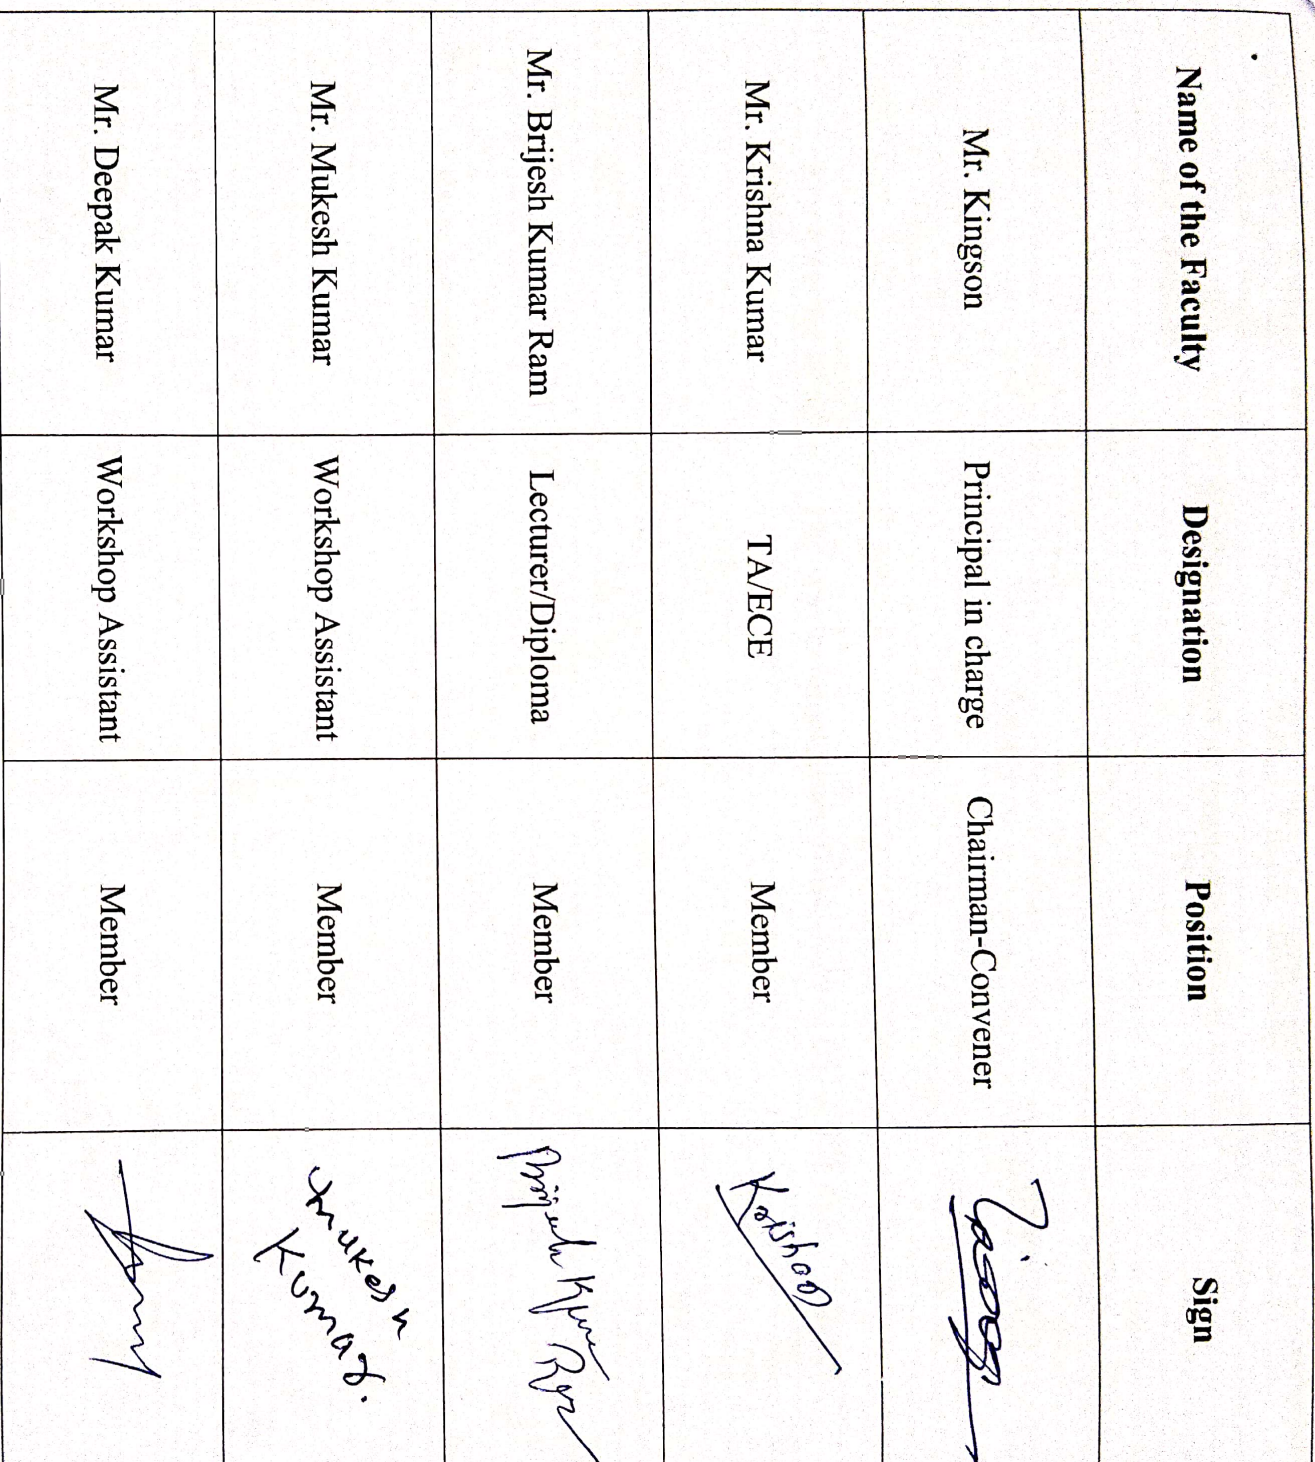 Name of the Faculty Designation Position Sign
Mr. Kingson Principal in charge Chairman-Convener
Mr. Krishna Kumar TA/ECE Member Krishna
Mr. Brijesh Kumar Ram Lecturer/Diploma Member Brijesh Kumar Ram
Mr. Mukesh Kumar Workshop Assistant Member Mukesh
Kumar.
Mr. Deepak Kumar Workshop Assistant Member